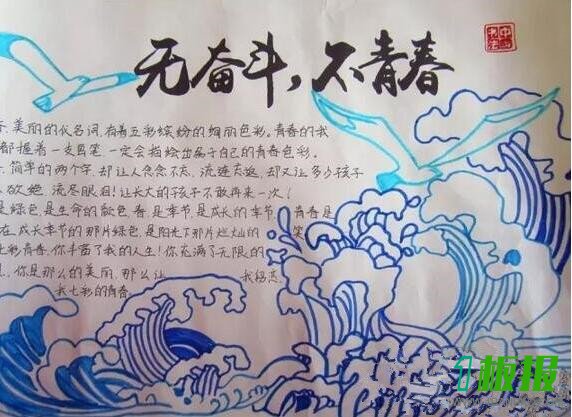 无奋斗，不青春
中国书法
美丽的代名词，有着五彩缤纷的绚丽色彩。青春的我
都握着一支画笔，一定会描绘出属于自己的青春色彩。
简单的两个字，却让人念念不忘，流连忘返，却又让多少孩子
欲绝，流尽眼泪！让长大的孩子不敢再来一次！
是绿色，是生命的颜色，春，是季节，是成长的季节，青春是
在成长季节的那片绿色，是阳光下那片灿烂的 笑
七彩青春，你丰富了我的人生！你充满了无限的
，你是那么的美丽，那么让 我
我七彩的青春
板报